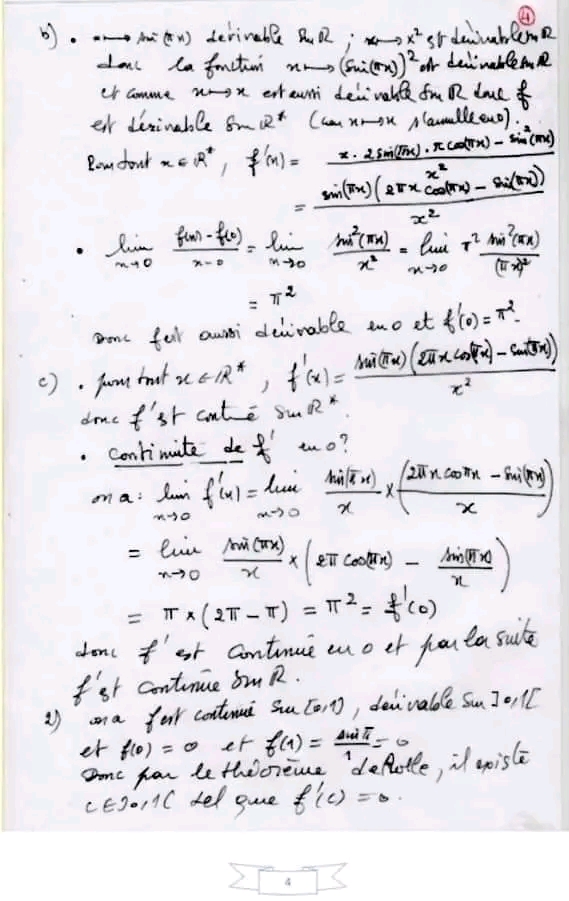 ④
b) • x ⟼ sin(πx) dérivable sur ℝ ; x ⟼ x² est dérivable sur ℝ
donc la fonction x ⟼ (sin(πx))² est dérivable sur ℝ
et comme x ⟼ x est aussi dérivable sur ℝ donc f
est dérivable sur ℝ* (car x ⟼ x s'annulle en 0).
Pour tout x ∈ ℝ*, f'(x) = (x · 2 sin(πx) · π cos(πx) − sin²(πx)) / x²
= sin(πx)(2πx cos(πx) − sin(πx)) / x²
• lim x→0 (f(x) − f(0)) / (x − 0) = lim x→0 sin²(πx) / x² = lim x→0 π² sin²(πx) / (πx)²
= π²
Donc f est aussi dérivable en 0 et f'(0) = π².
c) • pour tout x ∈ ℝ*, f'(x) = sin(πx)(2πx cos(πx) − sin(πx)) / x²
donc f' est continue sur ℝ*.
• Continuité de f' en 0 ?
on a : lim x→0 f'(x) = lim x→0 sin(πx) / x × ((2πx cos πx − sin(πx)) / x)
= lim x→0 sin(πx) / x × (2π cos(πx) − sin(πx) / x)
= π × (2π − π) = π² = f'(0)
donc f' est continue en 0 et par la suite
f' est continue sur ℝ.
2) on a f est continue sur [0,1], dérivable sur ]0,1[
et f(0) = 0 et f(1) = sin π / 1 = 0
Donc par le théorème de Rolle, il existe
c ∈ ]0,1[ tel que f'(c) = 0.
4